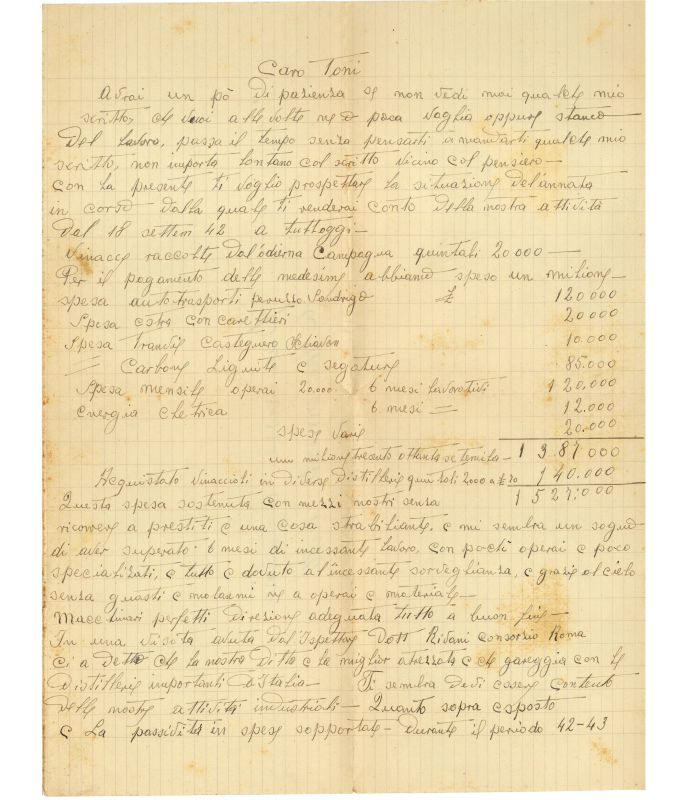 Caro Toni
Avrai un pò di pazienza se non vedi mai qualche mio
scritto, che vuoi alle volte ne ò poca voglia oppure stanco
del lavoro, passa il tempo senza pensarti a mandarti qualche mio
scritto, non importa lontano col scritto vicino col pensiero —
con la presente ti voglio prospettare la situazione del'annata
in corso dalla quale ti renderai conto della nostra attività
dal 18 settem 42 a tuttoggi —
Vinacce raccolte dal'odierna Campagna quintali 20000 —
Per il pagamento delle medesime abbiamo speso un milione —
spesa autotrasporti peruzzo Sandrigo £ 120.000
Spesa estra con carettieri 20.000
Spesa Tranvie Castegnero Schiavon 10.000
= Carbone Lignite e segature 85.000
Spesa mensile operai 20.000 6 mesi lavorativi 120.000
energia elettrica 6 mesi = 12.000
spese varie 20.000
un milione trecento ottanta sete mila — 1 387 000
Acquistato Vinaccioli in diverse distillerie quintali 2000 a £ 70 140.000
1 527.000
Questa spesa sostenuta con mezzi nostri senza
ricorrere a prestiti è una cosa strabiliante, e mi sembra un sogno
di aver superato 6 mesi di incessante lavoro, con pochi operai e poco
specializati, e tutto è dovuto a l'incessante sorveglianza, e grazie al cielo
senza guasti e malanni ne a operai e materiale —
Macchinari perfetti direzione adeguata tutto a buon fine —
In una visita avuta dal'Ispettore Dott Risani consorzio Roma
ci a detto che la nostra Ditta e la miglior atrezzata e che gareggia con le
distillerie importanti d'Italia — Ti sembra devi essere contento
delle nostre attività industriali — Quanto sopra esposto
e la passività in spese sopportate — durante il periodo 42-43